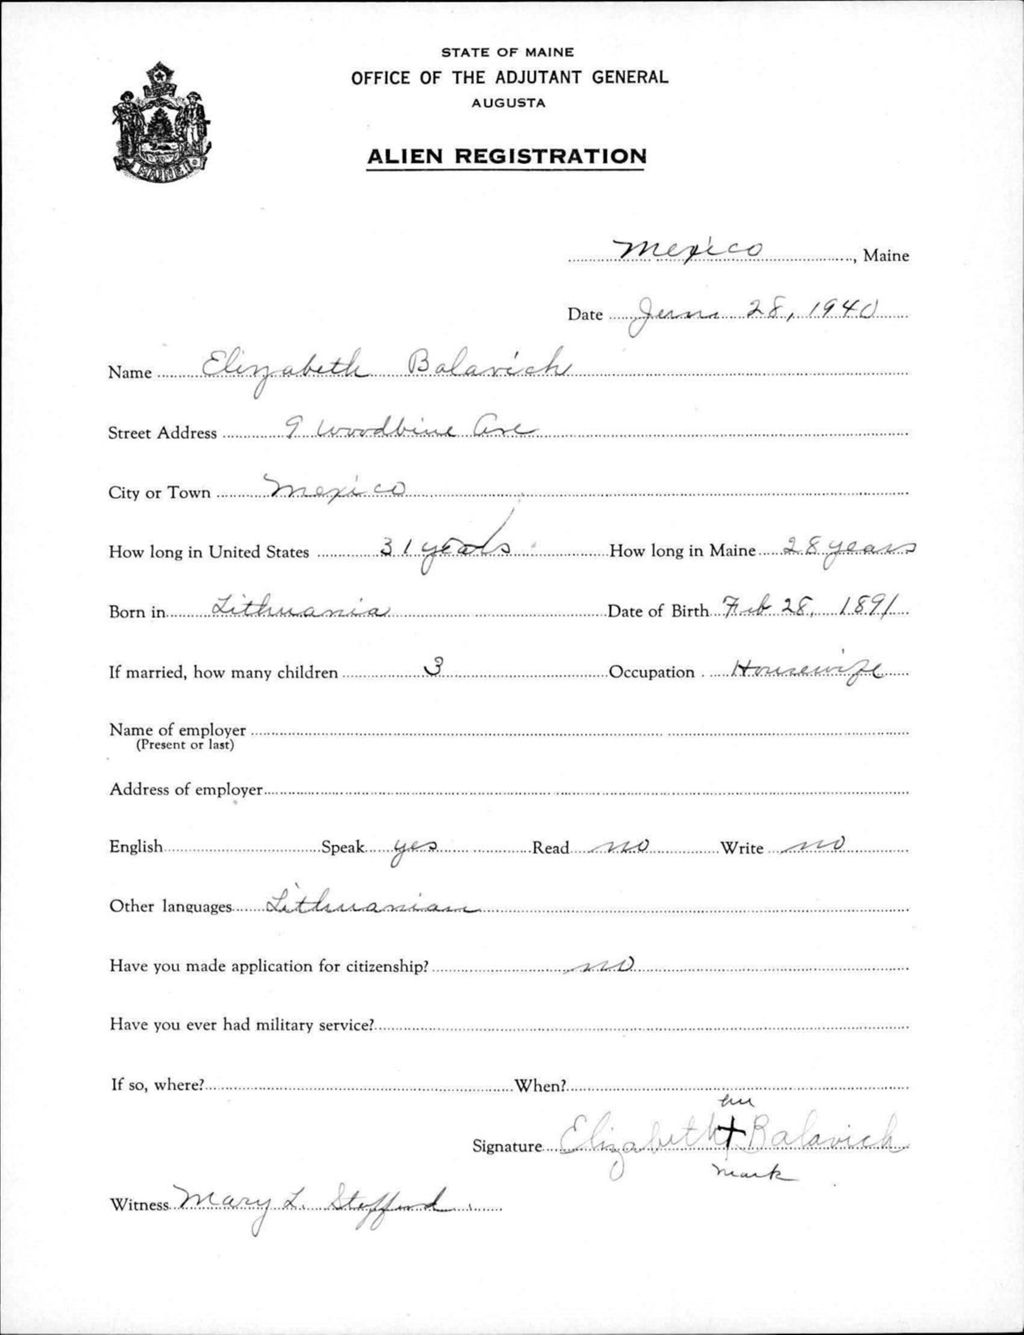 STATE OF MAINE
OFFICE OF THE ADJUTANT GENERAL
AUGUSTA
MAINE
ALIEN REGISTRATION
Mexico, Maine
Date June 28, 1940
Name Elizabeth Balavich
Street Address 9 Woodbine Ave
City or Town Mexico
How long in United States 31 years How long in Maine 28 years
Born in Lithuania Date of Birth Feb 28, 1891
If married, how many children 3 Occupation Housewife
Name of employer
(Present or last)
Address of employer
English Speak yes Read no Write no
Other languages Lithuanian
Have you made application for citizenship? no
Have you ever had military service?
If so, where? When?
Signature Elizabeth + Balavich
mark
Witness Mary L. Stafford